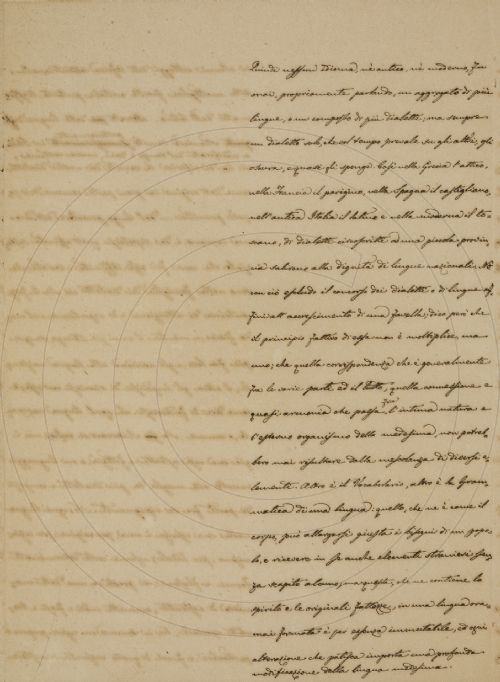 Quindi nessun idioma, nè antico, nè moderno, fu
mai, propriamente parlando, un aggregato di più
lingue, o un composto di più dialetti; ma sempre
un dialetto solo, che col tempo prevale su gli altri, gli
oscura, e quasi gli spenge. Così nella Grecia l'attico,
nella Francia il parigino, nella Spagna il castigliano,
nell'antica Italia il latino e nella moderna il to-
scano, di dialetti circoscritti ad una piccola provin-
cia salirono alla dignità di lingue nazionali. Nè
con ciò escludo il concorso dei dialetti o di lingue af-
fini all'accrescimento di una favella; dico però che
il principio fattivo di essa non è molteplice, ma
uno; che quella corrispondenza che è generalmente
fra le varie parti ed il tutto, quella connessione e
quasi armonia che passa fra l'intima natura e
l'esterno organismo della medesima, non potreb-
bero mai risultare dalla mescolanza di diversi e-
lementi. Altro è il Vocabolario, altro è la Gram-
matica di una lingua: quello, che ne è come il
corpo, può allargarsi giusta i bisogni di un popo-
lo, e ricevere in se anche elementi stranieri sen-
za scapito alcuno; ma questa, che ne contiene lo
spirito e le originali fattezze, in una lingua ora-
mai formata è per essenza immutabile, ed ogni
alterazione che patisca importa una profonda
modificazione della lingua medesima.